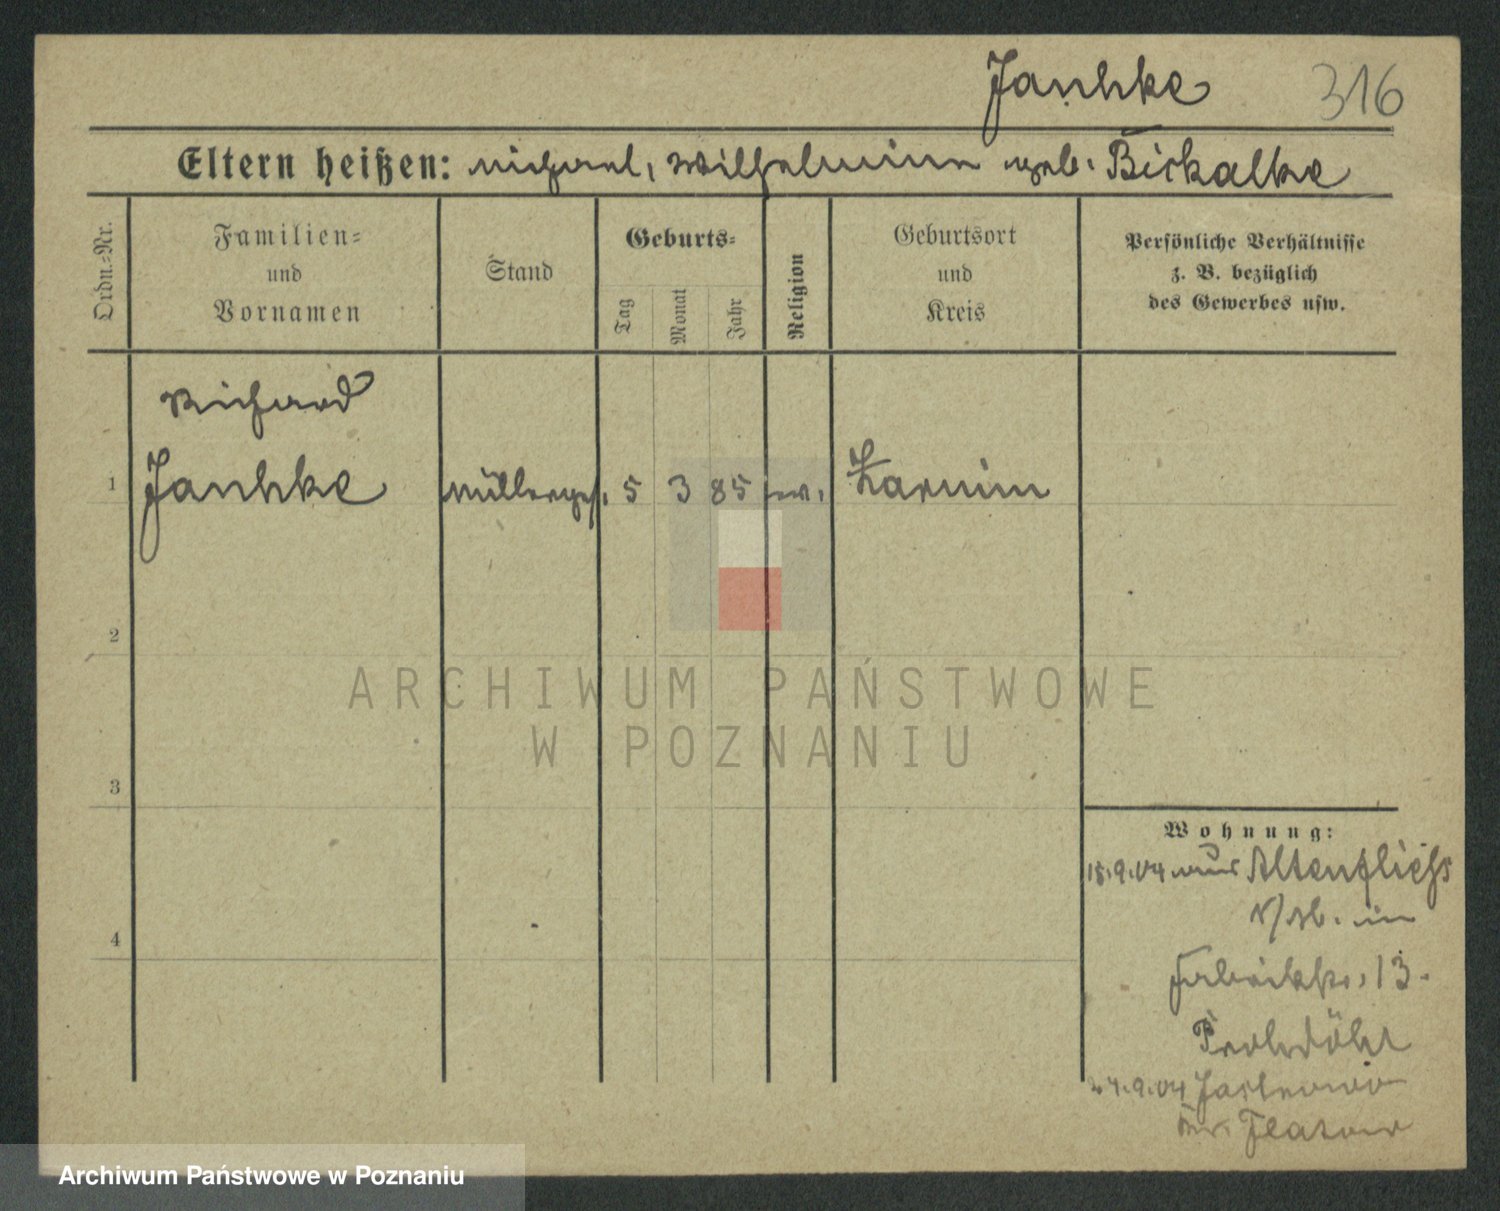 Janhke 316
Eltern heißen: Michael, Wilhelmine geb. Bickalke
Ordn.-Nr.
Familien-
und
Vornamen
Stand
Geburts-
Tag
Monat
Jahr
Religion
Geburtsort
und
Kreis
Persönliche Verhältnisse
z. B. bezüglich
des Gewerbes usw.
Richard
1 Janhke Müllerges. 5 3 85 ev. Karmin
2
3
4
Wohnung:
15.9.04 aus Altenfliess
in
Fabrikstr. 13.
24.9.04
Kr. Flatow
ARCHIWUM PAŃSTWOWE
W POZNANIU
Archiwum Państwowe w Poznaniu